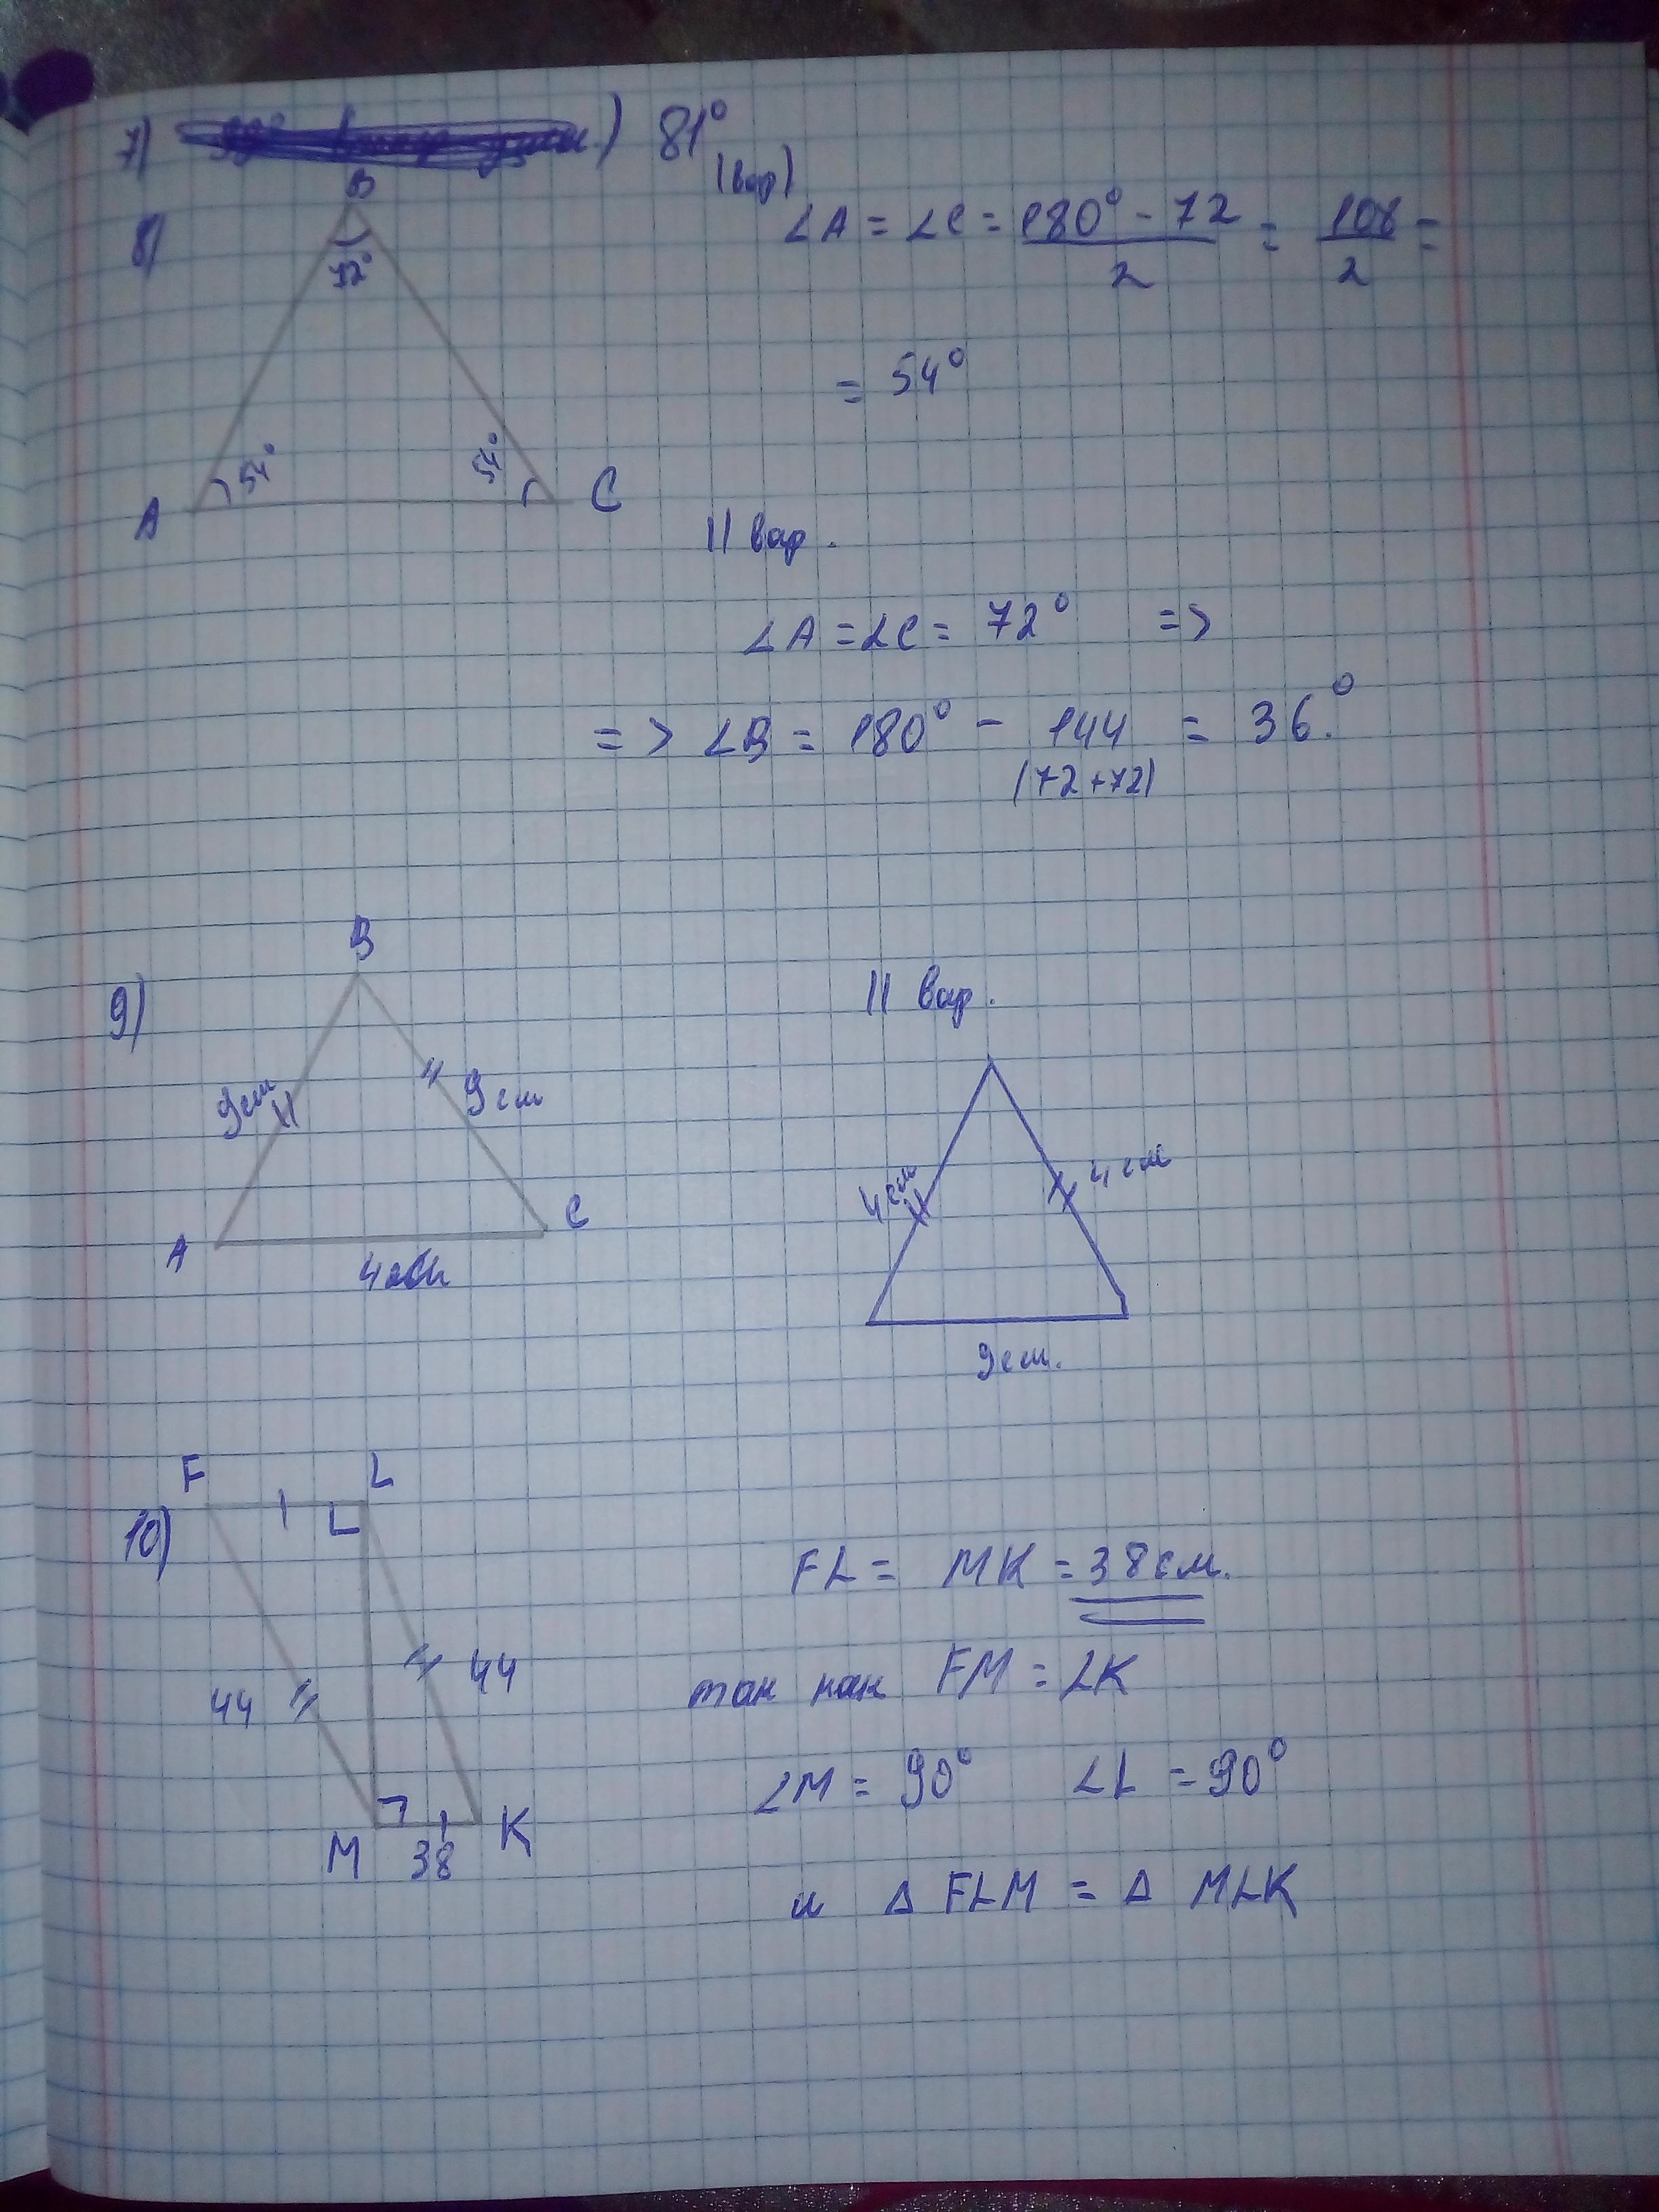 7) 81°
8) B
72°
54° 54°
A C
(вар)
∠A = ∠C = 180° - 72 / 2 = 108 / 2 =
= 54°
II вар.
∠A = ∠C = 72° =>
=> ∠B = 180° - 144 = 36.°
(72+72)
9) B
9см 9см
A C
4см
II вар.
4см 4см
9см.
10) F L
44 44
M 38 K
FL = MK = 38см.
так как FM = LK
∠M = 90° ∠L = 90°
и Δ FLM = Δ MLK